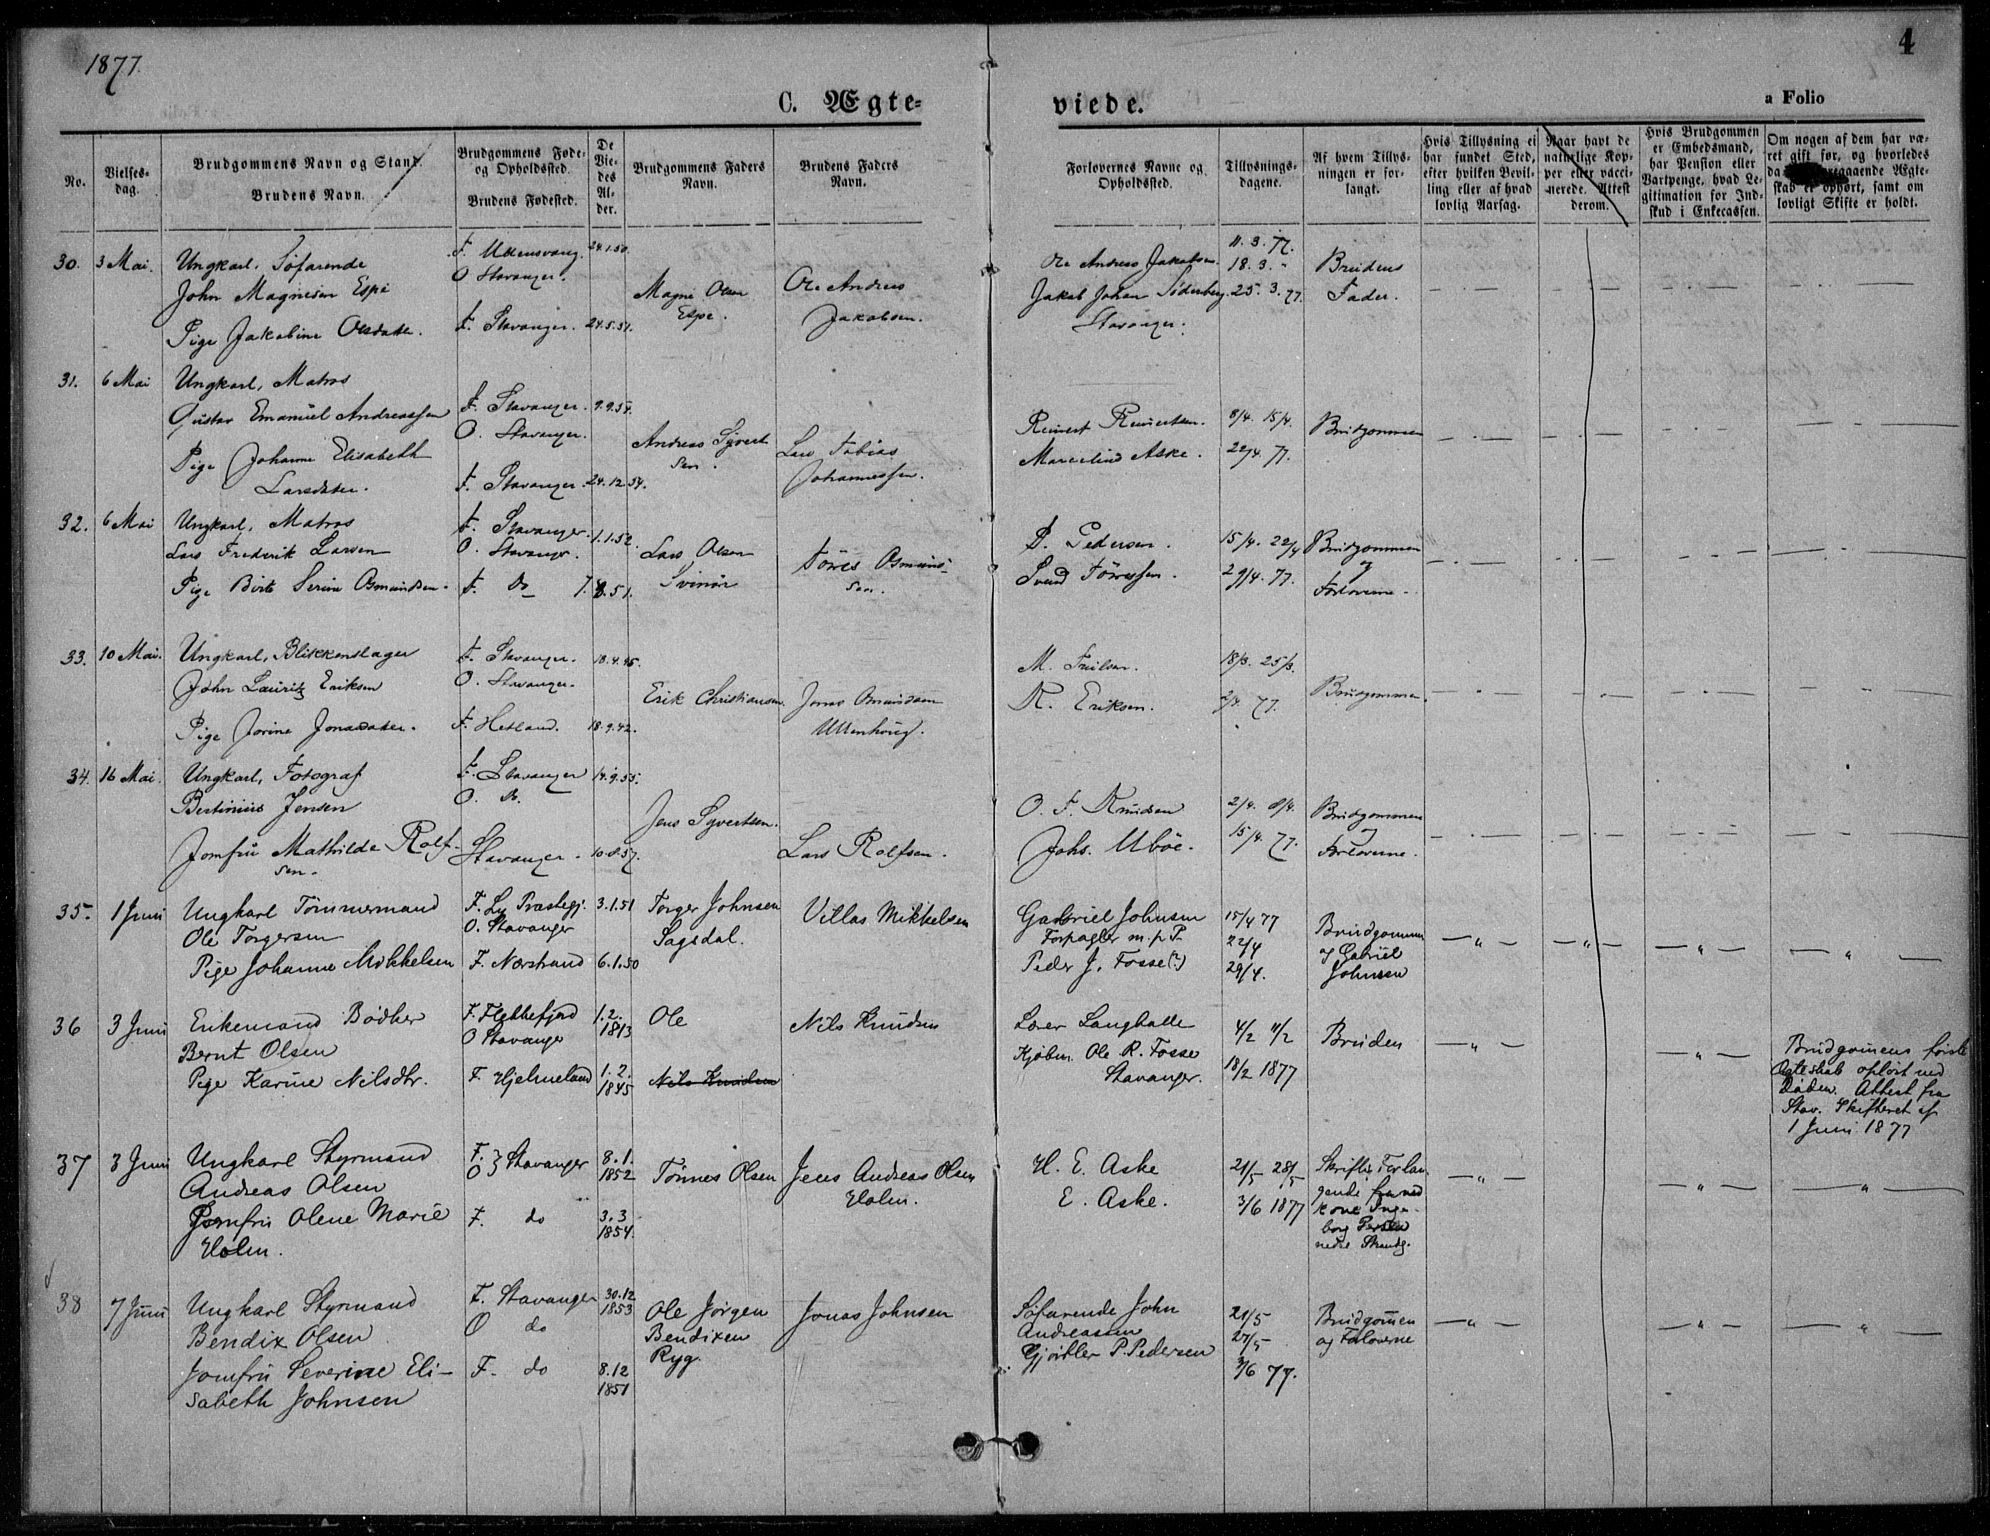 1877.
4
C. Ægte=
viede.
a Folio
No.
Vielses=
dag.
Brudgommens Navn og Stand.
Brudens Navn.
Brudgommens Føde=
og Opholdssted.
Brudens Fødested.
De
Vie=
des
Al=
der.
Brudgommens Faders
Navn.
Brudens Faders
Navn.
Forlovernes Navne og
Opholdssted.
Tillysnings=
dagene.
Af hvem Tillys=
ningen er for=
langt.
Hvis Tillysning ei
har fundet Sted,
efter hvilken Bevil=
ling eller af hvad
lovlig Aarsag.
Naar havt de
naturlige Kop=
per eller vacci=
nerede. Attest
derom.
Hvis Brudgommen
er Embedsmand,
har Pension eller
Vartpenge, hvad Le=
gitimation for Ind=
skud i Enkecassen.
Om nogen af dem har væ=
ret gift før, og hvorledes
da foregaaende Ægte=
skab er ophørt, samt om
lovligt Skifte er holdt.
30. 3 Mai. Ungkarl, Søfarende F. Ullensvang 24.1.50
John Magnesen Espe O Stavanger.
Pige Jakobine Olsdatter. F. Stavanger. 24.5.51.
Magne Olsen
Espe.
Ole Andreas
Jakobsen.
Ole Andreas Jakobsen 11. 3. 77.
18. 3. " Brudens
Jakob Johan Söderberg 25. 3. 77. Fader.
Stavanger.
31. 6 Mai Ungkarl, Matros
Gustav Emanuel Andreassen F. Stavanger. 9.9.54.
O. Stavanger.
Pige Johanne Elisabeth
Larsdatter. F. Stavanger. 24.12.54.
Andreas Syvert
sen.
Lars Tobias
Johannessen.
Reinert Reinertsen. 8/4. 15/4. Brudgommen
Marcelius Aske. 22/4 77.
32. 6 Mai Ungkarl, Matros F. Stavanger. 1.1.52.
Lars Frederik Larsen O. Stavanger.
Pige Birte Serine Osmundsen. F. do
Lars Olsen
Svinør
Tøres Osmund-
sen.
P. Pedersen. 15/4. 22/4 Brudgommen
Svend Tøressen. 29/4. 77. og
Forloverne.
33. 10 Mai. Ungkarl, Blikkenslager F. Stavanger. 18.4.45.
John Lauritz Eriksen O. Stavanger.
Pige Jorine Jonasdatter. F. Hetland. 18.9.42.
Erik Christiansen.
Jonas Osmundsen
Ullenhaug.
M. 18/3. 25/3.
R. Eriksen. 2/4. 77. Brudgommen.
34. 16 Mai. Ungkarl, Fotograf F. Stavanger 14.9.55.
Bertinius Jensen O. do.
Jomfru Mathilde Rolf- Stavanger. 10.8.57.
sen.
Jens Syvertsen.
Lars Rolfsen.
O. F. Knudsen 2/4. 8/4. Brudgommen
Johs. Ubøe. 15/4. 77. og
Forloverne.
35. 1 Juni Ungkarl Tømmermand F. Ly Præstegj. 3.1.51
Ole Torgersen O. Stavanger
Pige Johanne Mikkelsen F. Nærstrand 6.1.50
Torger Johnsen
Sagsdal.
Villas Mikkelsen
Gabriel Johnsen 15/4 77 Brudgommen
Forpagter m. p. P. 22/4 og Gabriel
Peder J. Fosse(?) 29/4. Johnsen
36 3 Juni Enkemand Bødker F. Flekkefjord 1.2.
1813
Bernt Olsen O Stavanger
Pige Karine Nilsdtr. F. Hjelmeland 1.2.
1845
Ole
Nils Knudsen
Nils Knudsen
Lærer Langballe 4/2 11/2 Bruden
Kjøbm. Ole R. Fosse 18/2 1877
Stavanger.
Brudgomens første
Ægteskab opløst ved
Døden. Attest fra
Stav. Skifteret af
1 Juni 1877
37 3 Juni Ungkarl Styrmand F. } Stavanger 8.1.
Andreas Olsen O 1852
Jomfru Olene Marie F. do 3.3
Holm. 1854.
Tønnes Olsen
Jens Andreas Olsen
Holm.
H. E. Aske 21/5 28/5
E. Aske. 3/6 1877
Skriftlig Forlan-
gende fra
kone Inge-
borg
nedre Strandg.
38 7 Juni Ungkarl Styrmand F. Stavanger 30.12
1853
Bendix Olsen O do
Jomfru Severine Eli- F. do 8.12
sabeth Johnsen 1851
Ole Jørgen
Bendixen
Ryg.
Jonas Johnsen
Søfarende John 21/5 Brudgommen
Andreassen 27/5 og Forloverne
Gjørtler P. Pedersen 3/6 77.